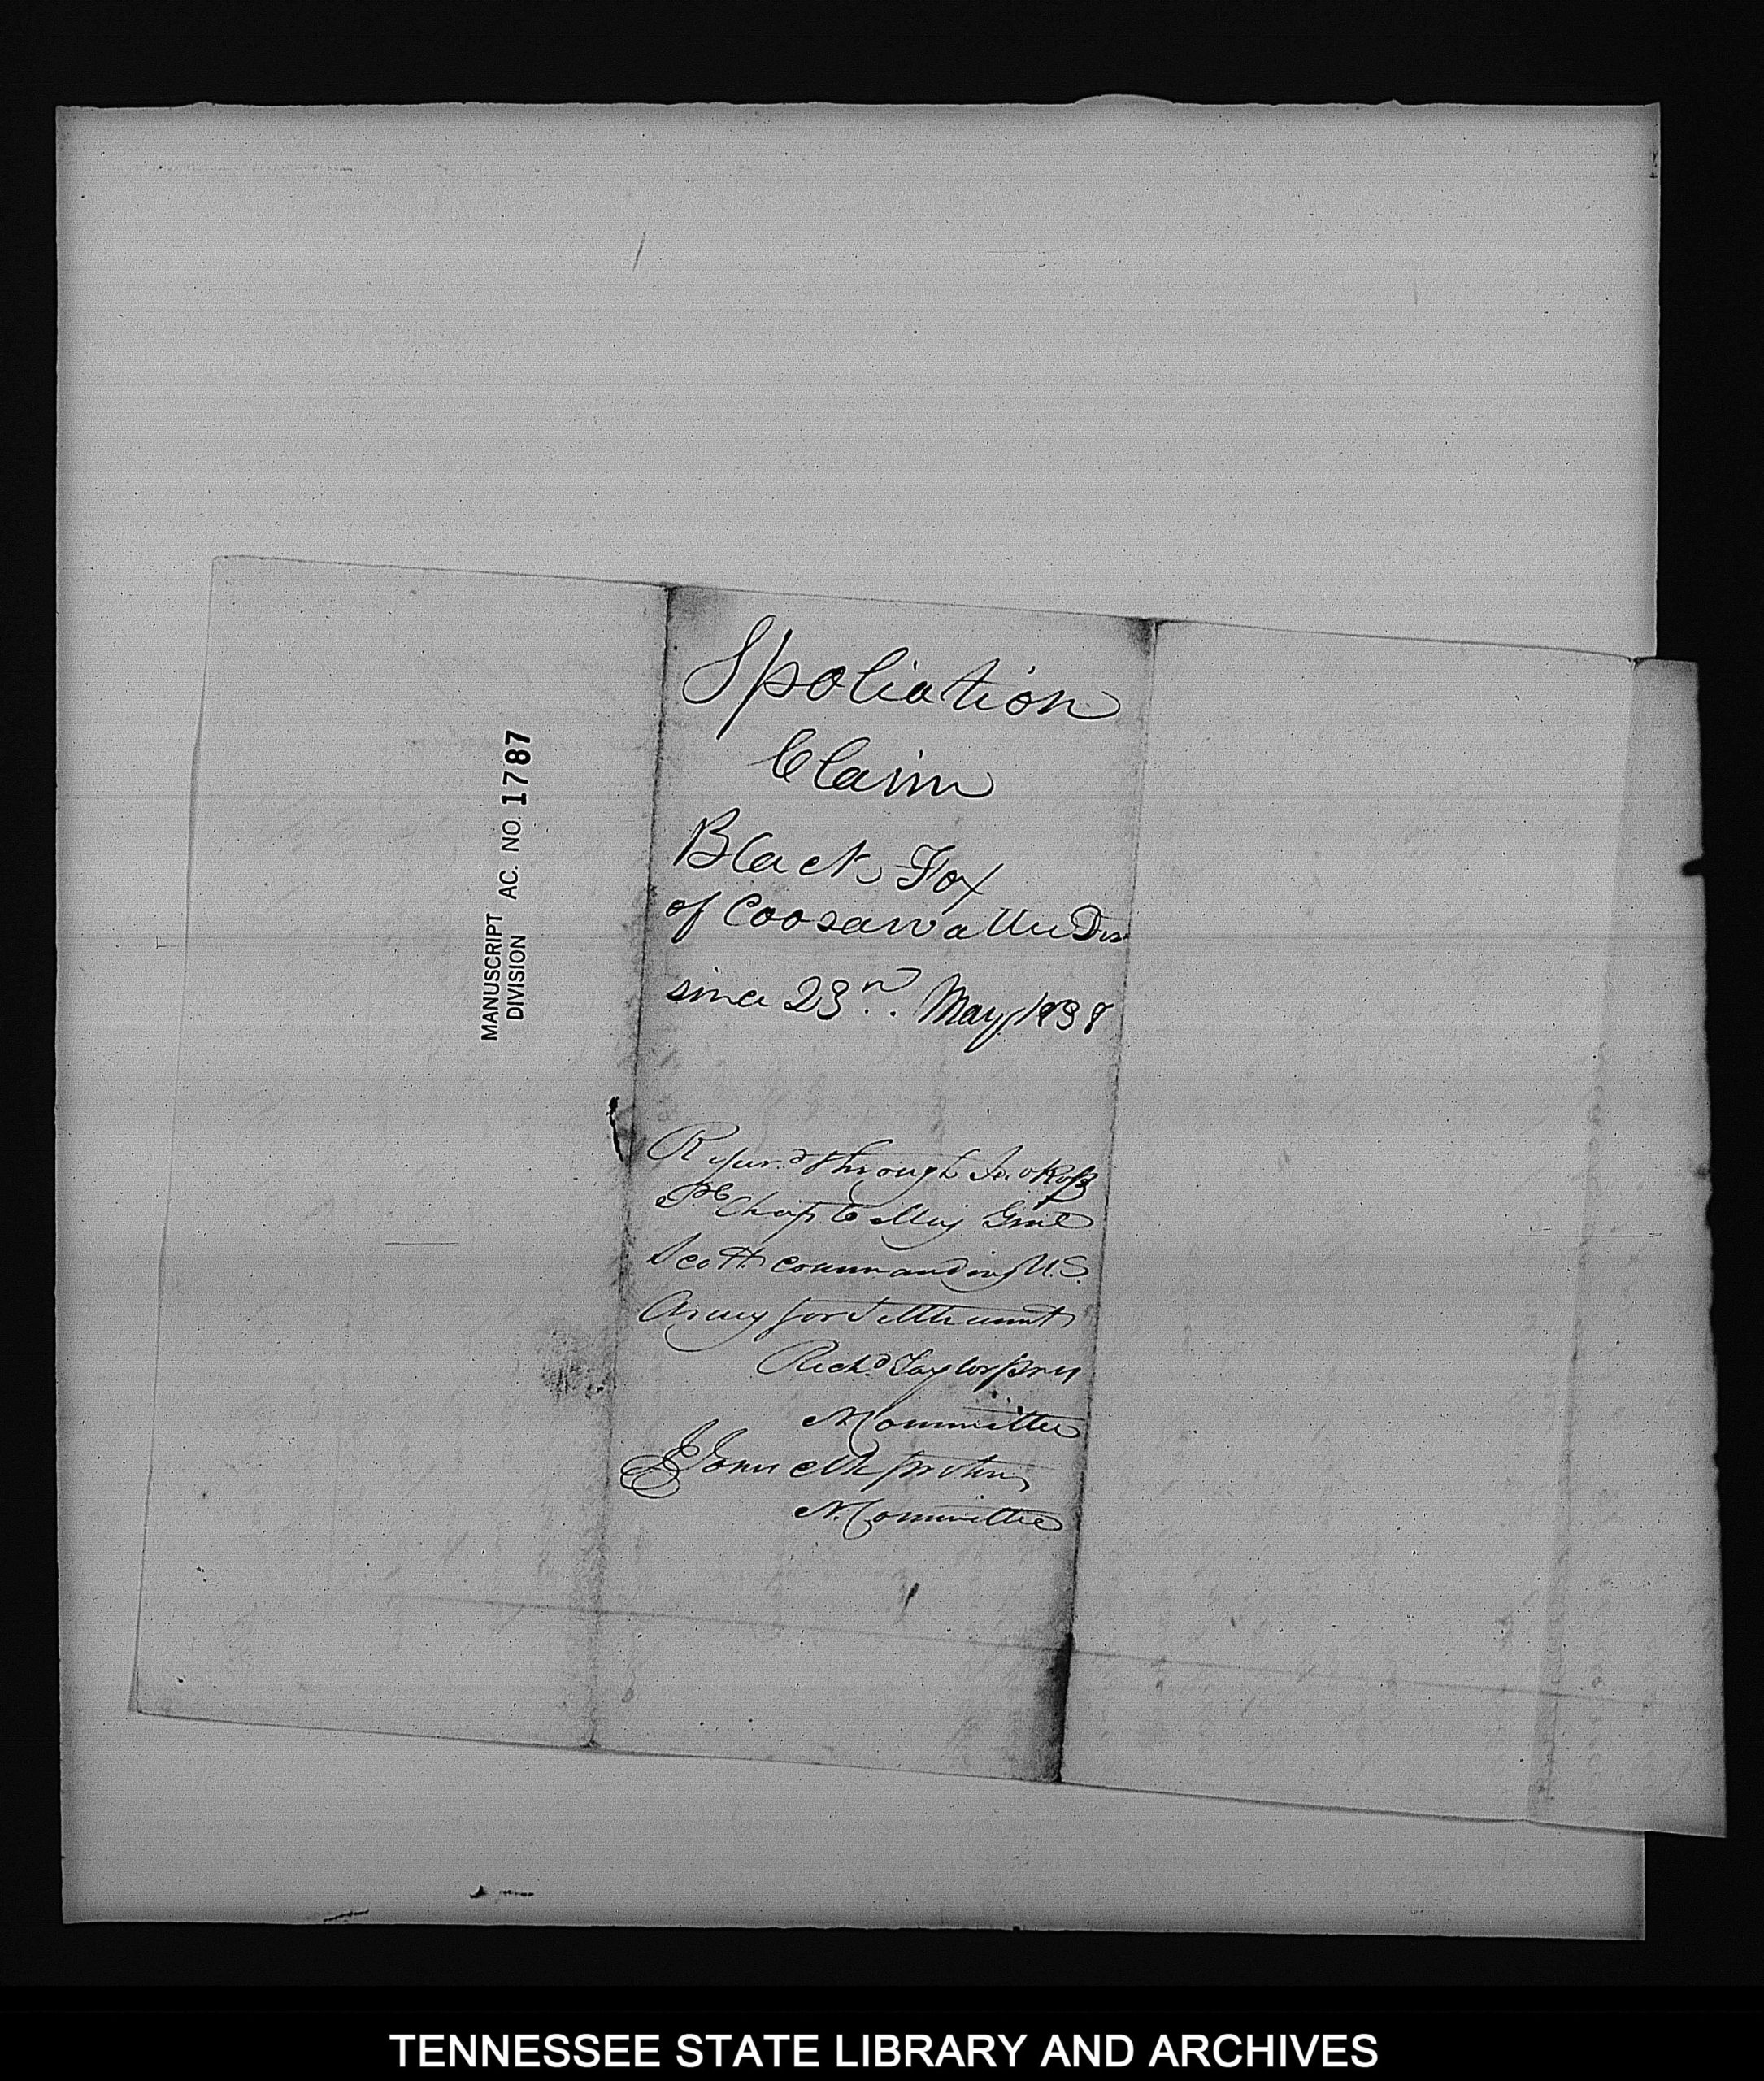 Spoliation
Claim
Black Fox
of Coosawattee Dis
since 23rd. May 1838
Referd through Jno Ross
Pl Chief to Maj Genl
Scott commanding U.S.
Army for Settlement
Richd Taylor Pres
N Committee
N. Committee
MANUSCRIPT
DIVISION AC. NO. 1787
TENNESSEE STATE LIBRARY AND ARCHIVES